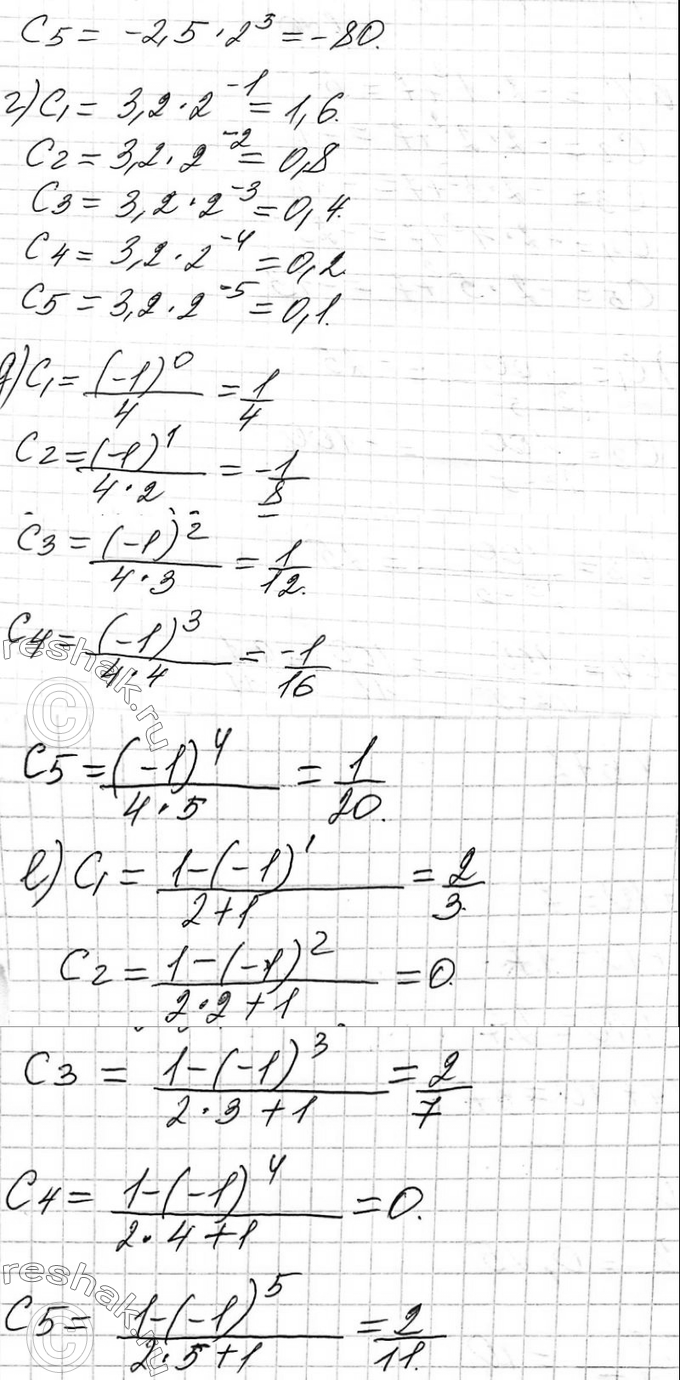 C5 = -2,5 · 2^3 = -80.
г) C1 = 3,2 · 2^-1 = 1,6.
C2 = 3,2 · 2^-2 = 0,8
C3 = 3,2 · 2^-3 = 0,4.
C4 = 3,2 · 2^-4 = 0,2.
C5 = 3,2 · 2^-5 = 0,1.
д) C1 = (-1)^0/4 = 1/4
C2 = (-1)^1/(4 · 2) = -1/8
C3 = (-1)^2/(4 · 3) = 1/12.
C4 = (-1)^3/(4 · 4) = -1/16
reshak.ru
C5 = (-1)^4/(4 · 5) = 1/20.
е) C1 = (1-(-1)^1)/(2+1) = 2/3.
C2 = (1-(-1)^2)/(2 · 2+1) = 0.
C3 = (1-(-1)^3)/(2 · 3+1) = 2/7
C4 = (1-(-1)^4)/(2 · 4+1) = 0.
reshak.ru
C5 = (1-(-1)^5)/(2 · 5+1) = 2/11.